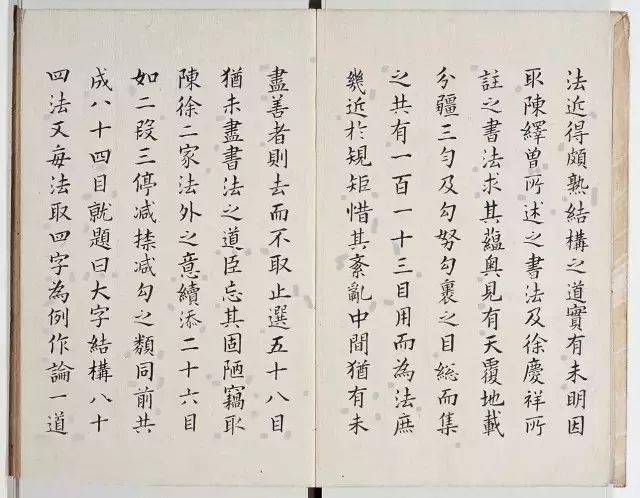 法近得頗熟結構之道實有未明因
取陳繹曾所述之書法及徐慶祥所
註之書法求其蘊奥見有天覆地載
分疆三勻及勾努勾裹之目総而集
之共有一百一十三目用而為法庶
幾近於規矩惜其紊亂中間猶有未
盡善者則去而不取止選五十八目
猶未盡書法之道臣忘其固陋竊取
陳徐二家法外之意續添二十六目
如二段三停减捺减勾之類同前共
成八十四目就題曰大字結構八十
四法又每法取四字為例作論一道